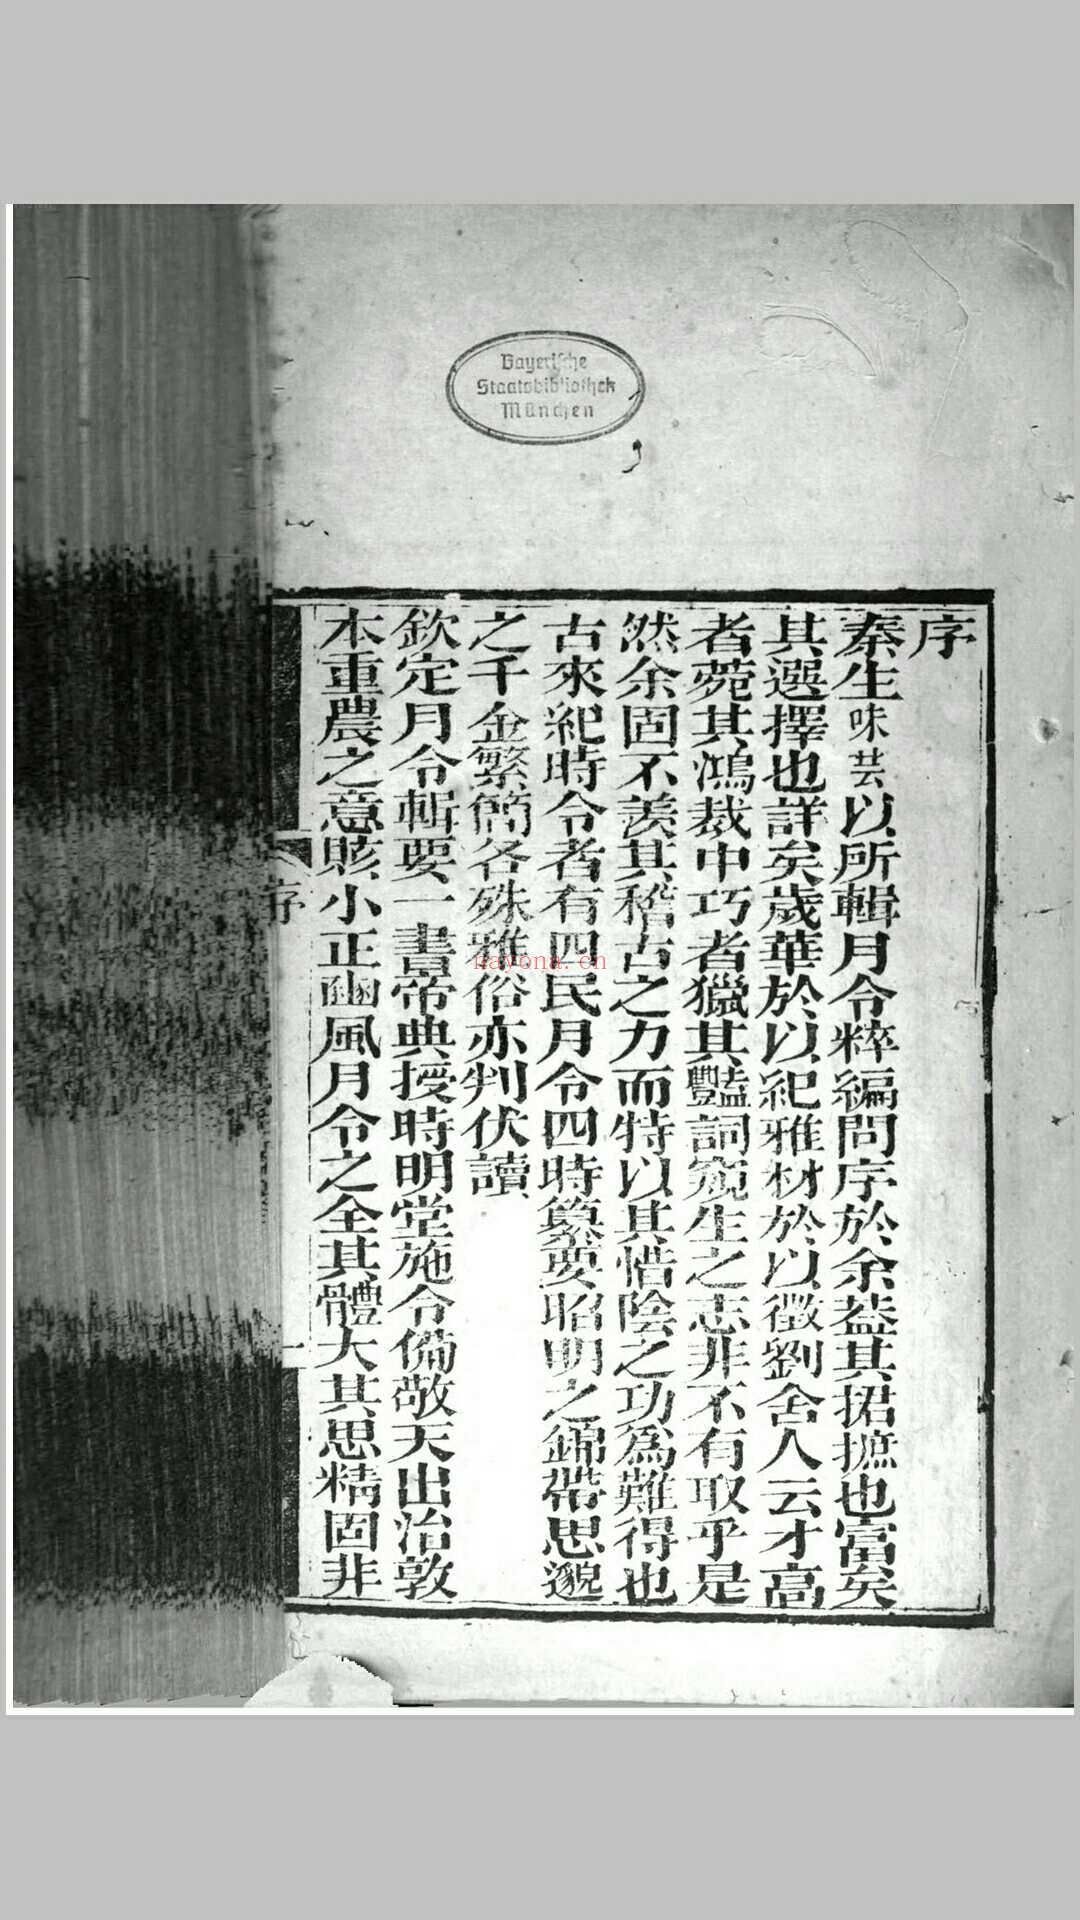 Bayerische
Staatsbibliothek
München
序
秦生味芸以所輯月令粹編問序於余葢其捃摭也富矣
其選擇也詳矣歲華於以紀雅材於以徵劉舍人云才高
者菀其鴻裁中巧者獵其豔詞窺生之志非不有取乎是
然余固不羨其稽古之力而特以其惜陰之功為難得也
古來紀時令者有四民月令四時纂要昭明之錦帶思邈
之千金繁簡各殊雅俗亦判伏讀
欽定月令輯要一書帝典授時明堂施令備敬天出治敦
本重農之意賅小正豳風月令之全其體大其思精固非
序
一
nayona.cn